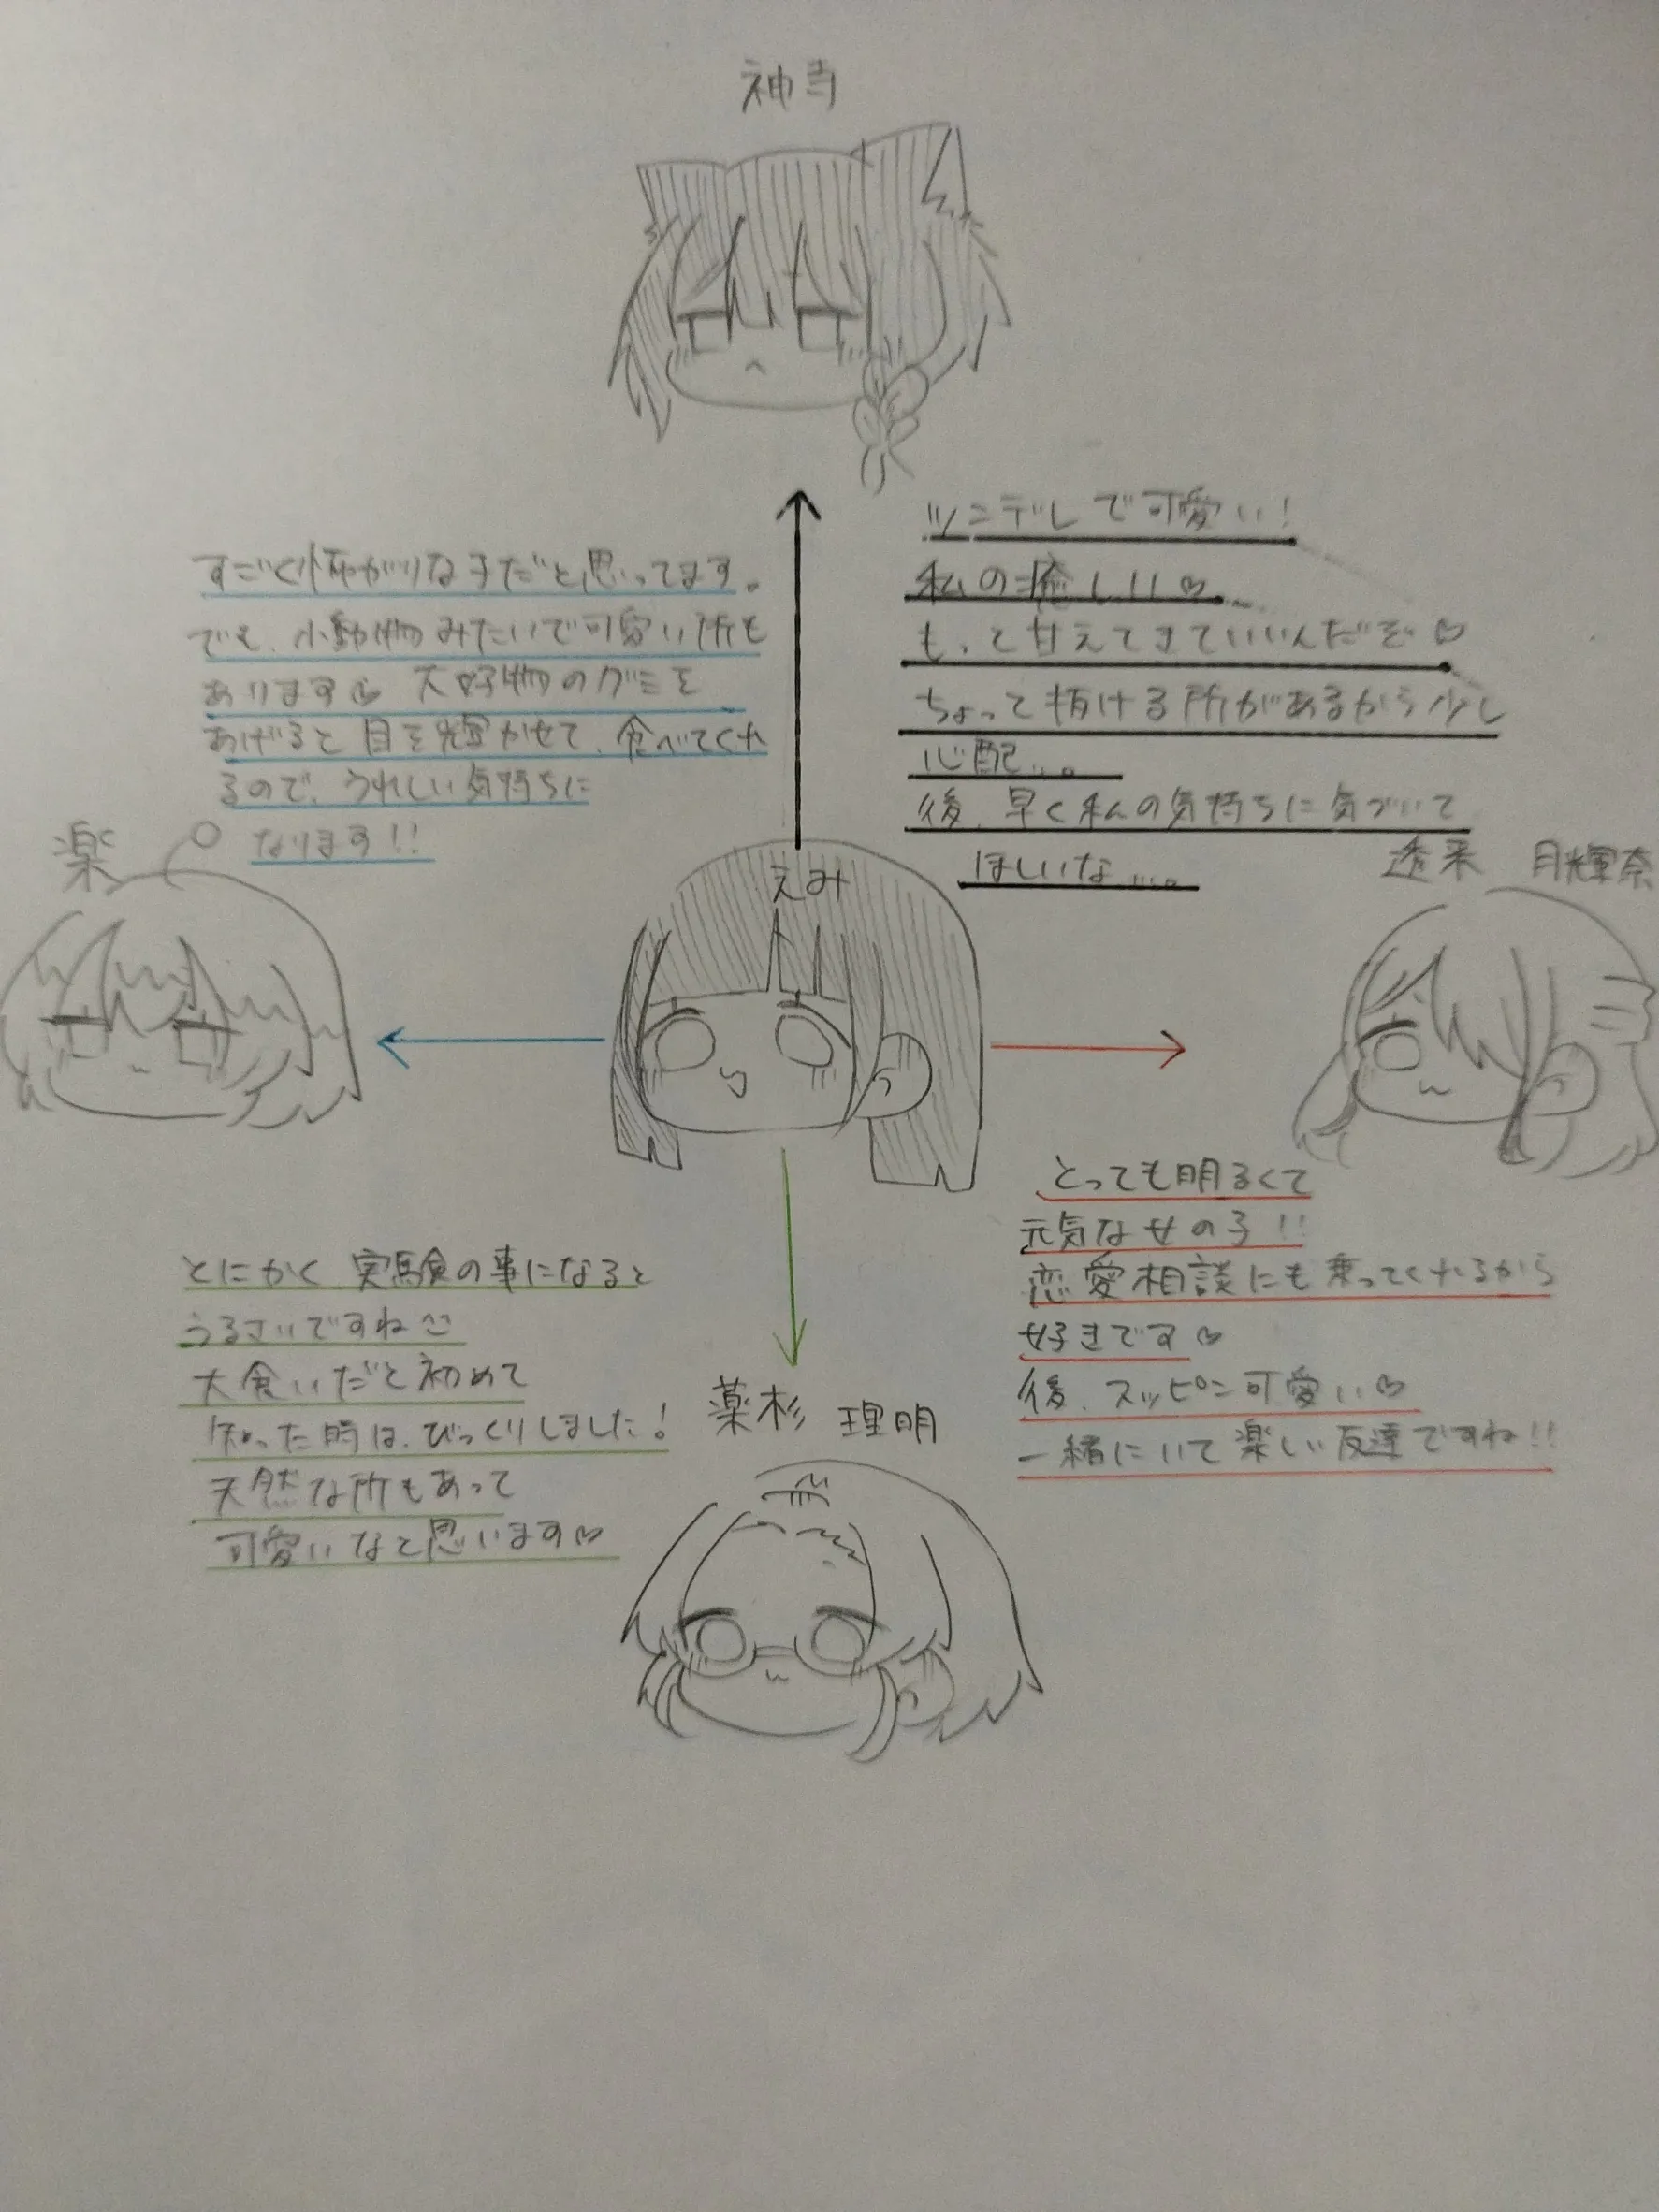 神寺
ツンデレで可愛い!
私の癒し!!♡
もっと甘えてきていいんだぞ♡
ちょって抜ける所があるから少し
心配…。
後、早く私の気持ちに気づいて
ほしいな…。
すごく怖がりな子だと思ってます。
でも、小動物みたいで可愛い所も
あります♡ 大好物のグミを
あげると目を輝かせて、食べてくれ
るので、うれしい気持ちに
なります!!
楽
えみ
透来 月輝奈
とっても明るくて
元気な女の子!!
恋愛相談にも乗ってくれるから
好きです♡
後、スッピン可愛い♡
一緒にいて楽しい友達ですね!!
とにかく実験の事になると
うるさいですね
大食いだと初めて
知った時は、びっくりしました!
天然な所もあって
可愛いなと思います♡
薬杉 理明